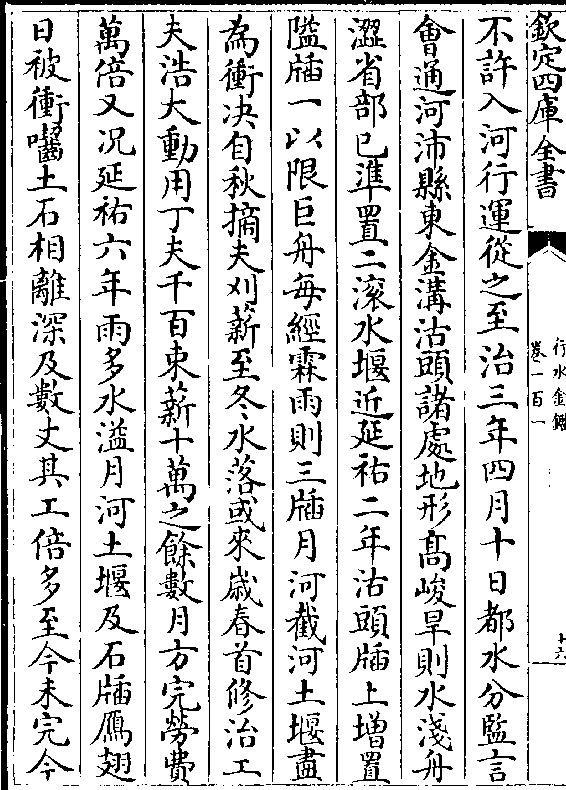 欽定四庫全書
行水金鑑
卷一百一
十六
不許入河行運從之至治三年四月十日都水分監言
會通河沛縣東金溝沽頭諸處地形髙峻旱則水淺舟
澀省部已準置二滚水堰近延祐二年沽頭牐上增置
隘牐一以限巨舟每經霖雨則三牐月河截河土堰盡
為衝決自秋摘夫刈薪至冬水落或來嵗春首修治工
夫浩大動用丁夫千百束薪十萬之餘數月方完勞費
萬倍又况延祐六年雨多水溢月河土堰及石牐鴈翅
日被衝囓土石相離深及數丈其工倍多至今未完今